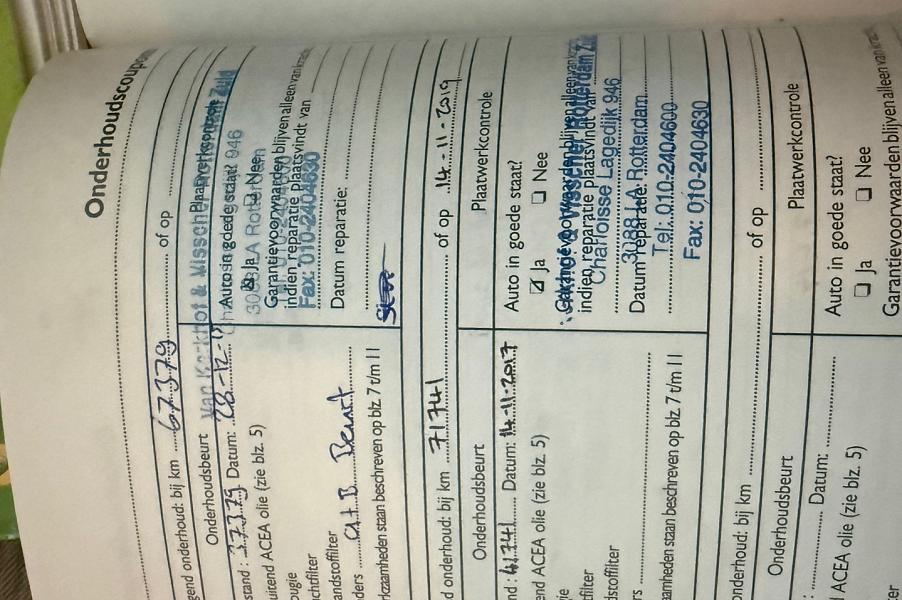 Onderhoudscoupon
gend onderhoud: bij km 67379 of op
Onderhoudsbeurt
stand: 37379 Datum: 28-12-
uitend ACEA olie (zie blz. 5)
ougie
chtfilter
andstoffilter
ders A+B Beurt
rkzaamheden staan beschreven op blz. 7 t/m 11
Plaatwerkcontrole
Auto in goede staat?
Ja Nee
Garantievoorwaarden blijven alleen van kracht
indien reparatie plaatsvindt van
Datum reparatie:
Van Kerkhof & Visscher Rotterdam Zuid
946
3088 LA Rotterdam
010-2404600
Fax: 010-2404630
d onderhoud: bij km 71741 of op 14-11-2019
Onderhoudsbeurt
nd: 41741 Datum: 14-11-2017
end ACEA olie (zie blz. 5)
gie
tfilter
dstoffilter
rs
aamheden staan beschreven op blz. 7 t/m 11
Plaatwerkcontrole
Auto in goede staat?
Ja Nee
Garantievoorwaarden blijven alleen van
indien reparatie plaatsvindt van
Datum reparatie:
Visscher Rotterdam Zuid
Charloisse Lagedijk 946
3088 LA Rotterdam
Tel: 010-2404600
Fax: 010-2404630
onderhoud: bij km of op
Onderhoudsbeurt
: Datum:
d ACEA olie (zie blz. 5)
er
Plaatwerkcontrole
Auto in goede staat?
Ja Nee
Garantievoorwaarden blijven alleen van kracht